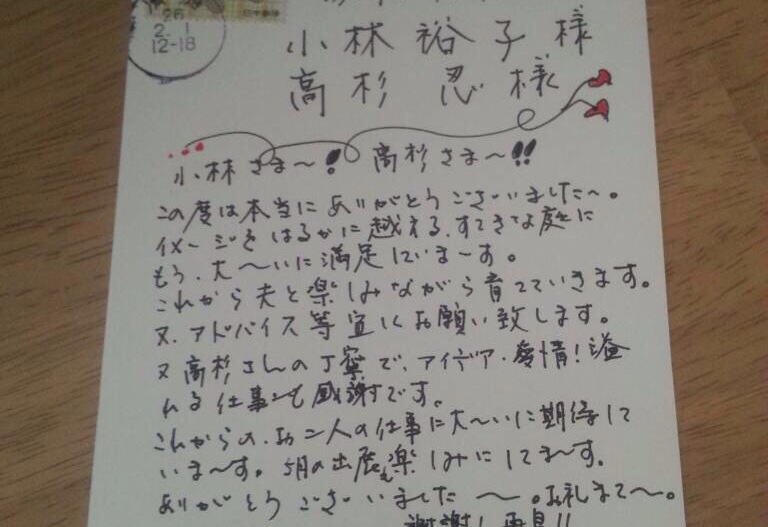 26
2. 1
12-18
小林裕子様
高杉 忍様
小林さま〜! 高杉さま〜!!
この度は本当にありがとうございました〜。
イメージをはるかに越える、すてきな庭に
もう、大〜いに満足しています。
これから夫と楽しみながら育てていきます。
又、アドバイス等宜しくお願い致します。
又高杉さんの丁寧で、アイデア・愛情!溢
れる仕事にも感謝です。
これからの、お二人の仕事に大〜いに期待して
いま〜す。5月の出展も楽しみにしてま〜す。
ありがとうございました〜。お礼まで〜。
謝謝! 再見!!